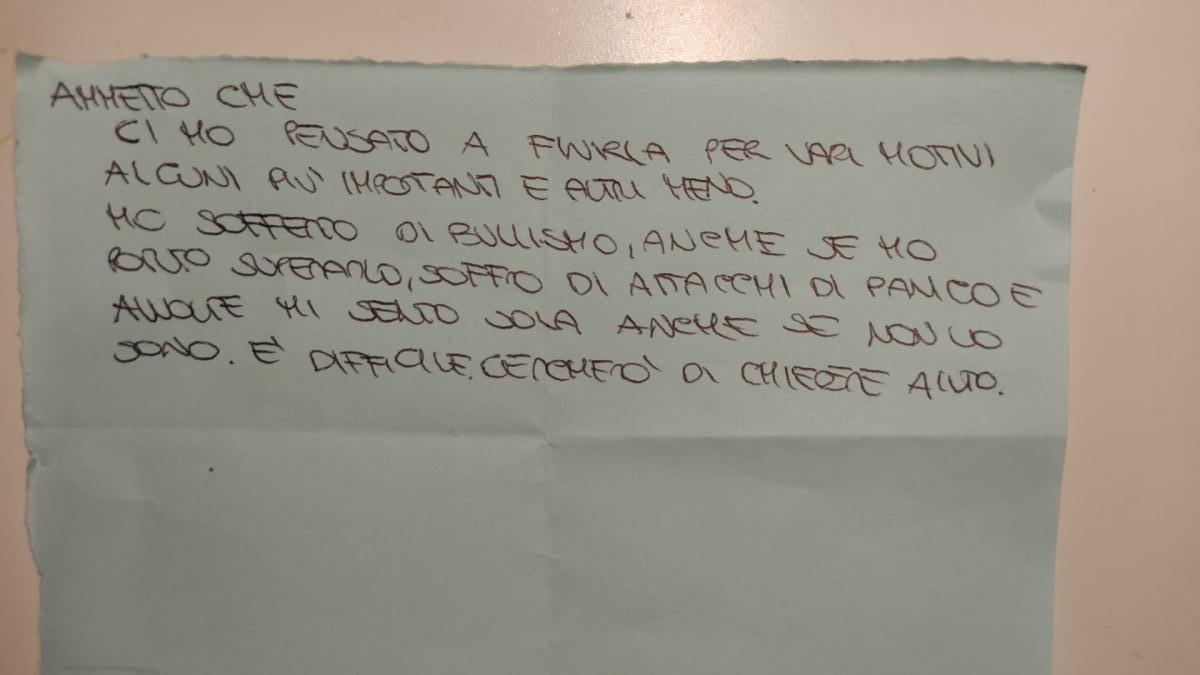 AMMETTO CHE
CI HO PENSATO A FINIRLA PER VARI MOTIVI
ALCUNI PIÙ IMPORTANTI E ALTRI MENO.
HO SOFFERTO DI BULLISMO, ANCHE SE HO
POTUTO SUPERARLO, SOFFRO DI ATTACCHI DI PANICO E
AVVOLTE MI SENTO SOLA ANCHE SE NON LO
SONO. E' DIFFICILE. CERCHERÒ DI CHIEDERE AIUTO.